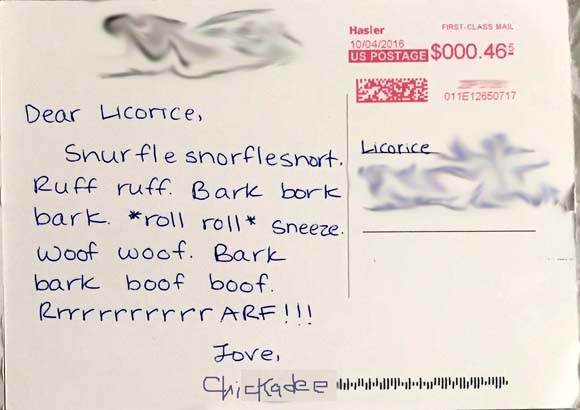 Hasler
FIRST-CLASS MAIL
10/04/2016
US POSTAGE $000.46⁵
011E12650717
Dear Licorice,
Snurflesnorflesnort.
Ruff ruff. Bark bork
bark. *roll roll* sneeze.
Woof woof. Bark
bark boof boof.
Rrrrrrrrrrr ARF!!!
Love,
Chickadee
Licorice